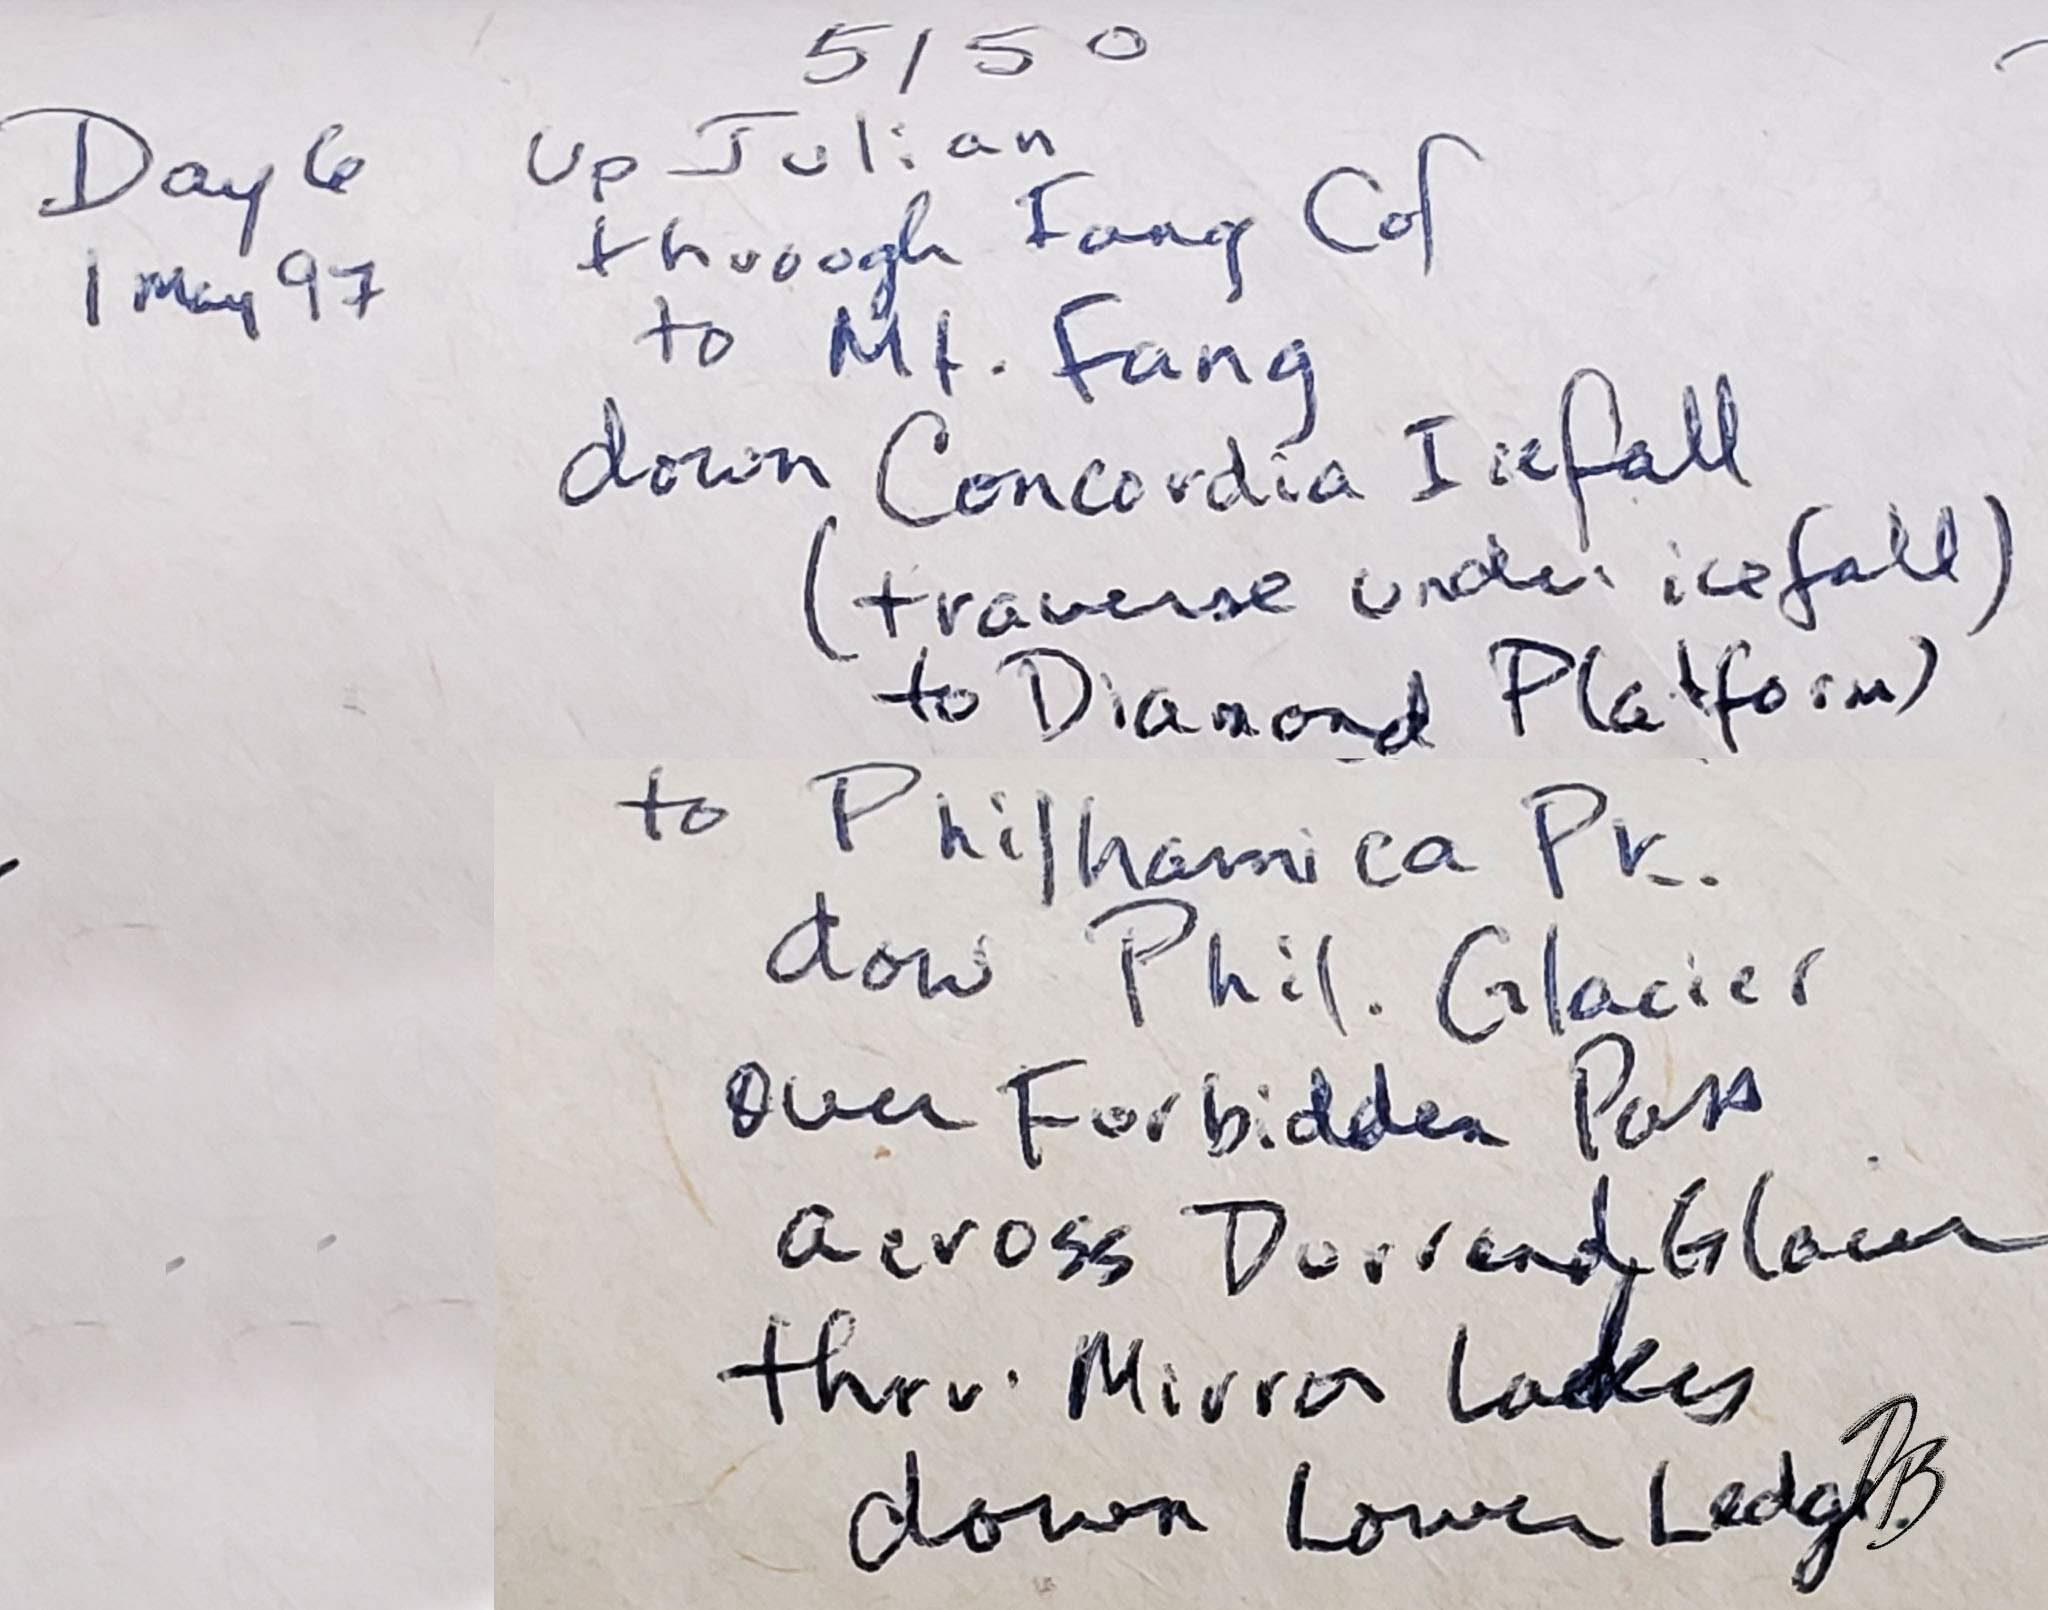 5150
Day 6 Up Julian
1 May 97 through Fang Col
to Mt. Fang
down Concordia Icefall
(traverse under icefall)
to Diamond Platform)
to Philhamica Pk.
dow Phil. Glacier
over Forbidden Pass
across Durrand Glacier
thru. Mirror Lakes
down Lower Ledge
DB